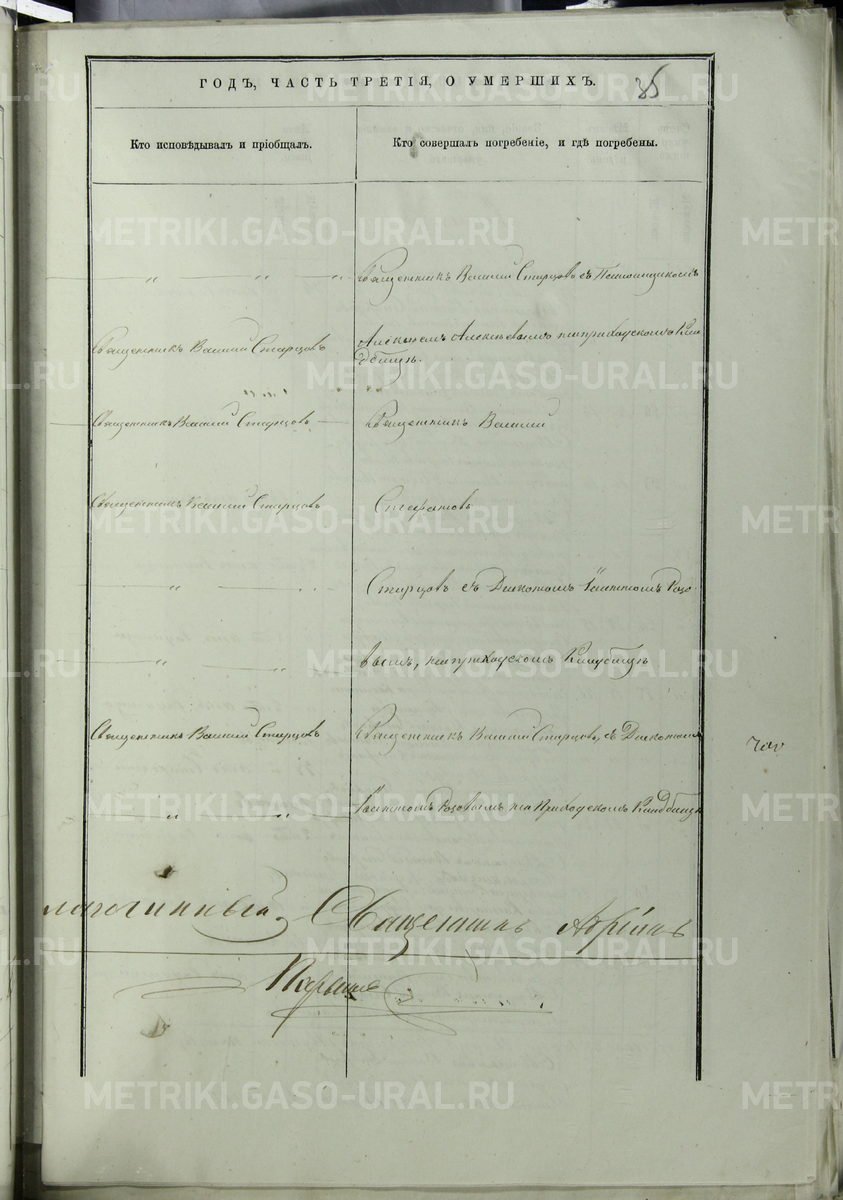 ГОДЪ, ЧАСТЬ ТРЕТІЯ, О УМЕРШИХЪ.
35
Кто исповѣдывалъ и пріобщалъ.
Кто совершалъ погребеніе, и гдѣ погребены.
Священникъ Василий Старцовъ съ
Священникъ Василий Старцовъ
на приходскомъ Кла
дбищѣ.
Священникъ Василий Старцовъ
Священникъ Василий
Священникъ Василий Старцовъ
Старцовъ съ Дьякономъ
вымъ, на приходскомъ Кладбищѣ
Священникъ Василий Старцовъ
Священникъ Василий Старцовъ, съ Дьякономъ
на Приходскомъ Кладбищѣ
Священникъ
METRIKI.GASO-URAL.RU